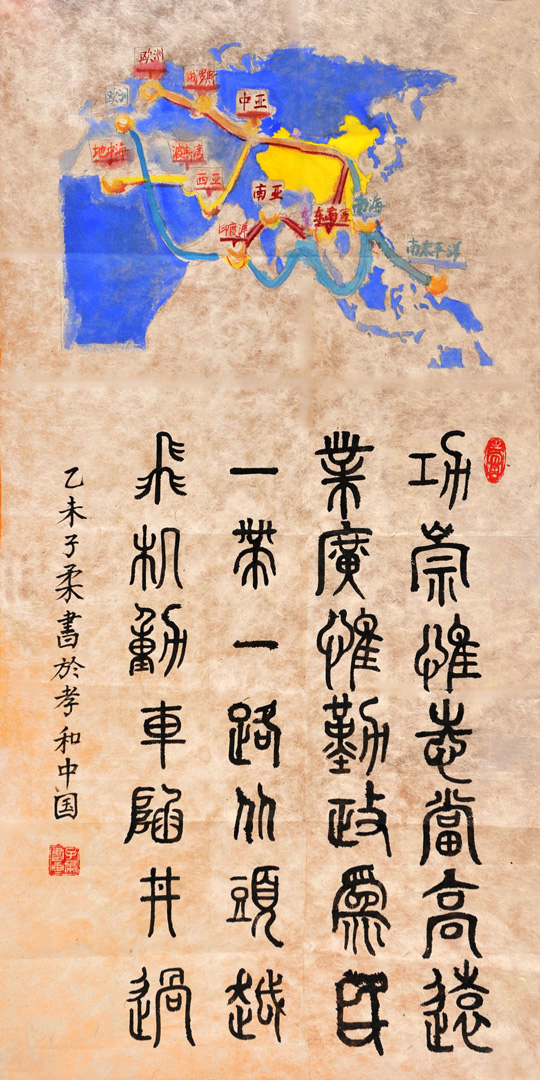 欧洲
俄罗斯
欧洲
中亚
地中海
波斯湾
西亚
南亚
东南亚
南海
印度洋
南太平洋
功崇惟志當高遠
業廣惟勤政為民
一帶一路从頭越
飛机動車陷井過
乙未子柔書於孝和中国